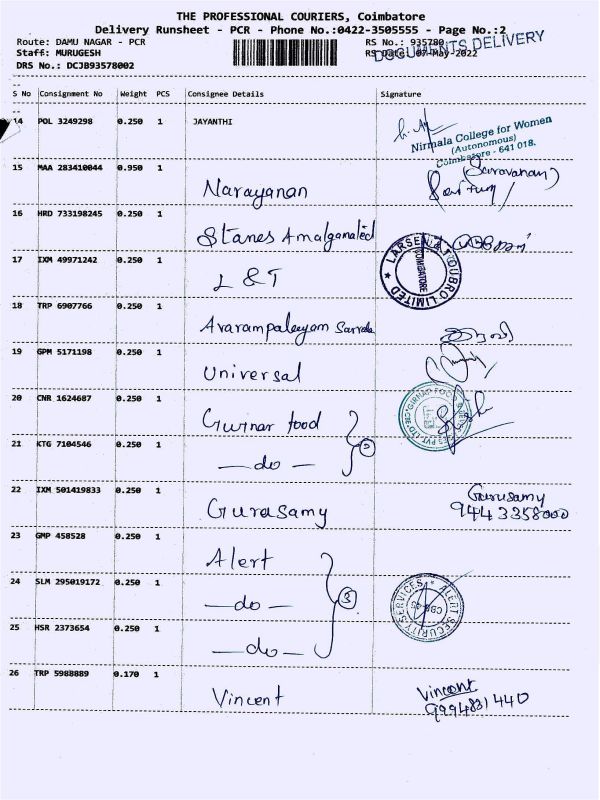 THE PROFESSIONAL COURIERS, Coimbatore
Delivery Runsheet - PCR - Phone No.:0422-3505555 - Page No.:2
Route: DAMU NAGAR - PCR RS No.: 935780
Staff: MURUGESH RS Date: 07-May-2022
DOCUMENTS DELIVERY
DRS No.: DCJB93578002
S No Consignment No Weight PCS Consignee Details Signature
14 POL 3249298 0.250 1 JAYANTHI
Nirmala College for Women
(Autonomous)
Coimbatore - 641 018.
15 MAA 283410044 0.950 1 Narayanan (Saravanan)
16 HRD 733198245 0.250 1 Stanes Amalganated
17 IXM 49971242 0.250 1 L & T
LARSEN & TOUBRO LIMITED
COIMBATORE
18 TRP 6907766 0.250 1 Avarampalayam
19 GPM 5171198 0.250 1 Universal
20 CNR 1624687 0.250 1 Guirnar food
21 KTG 7104546 0.250 1 — do — 2
22 IXM 501419833 0.250 1 Gurasamy Gurusamy
9443358000
23 GMP 458528 0.250 1 Alert
24 SLM 295019172 0.250 1 — do — 3
ALERT SECURITY SERVICES
25 HSR 2373654 0.250 1 — do —
26 TRP 5988889 0.170 1 Vincent Vincent
9994831440